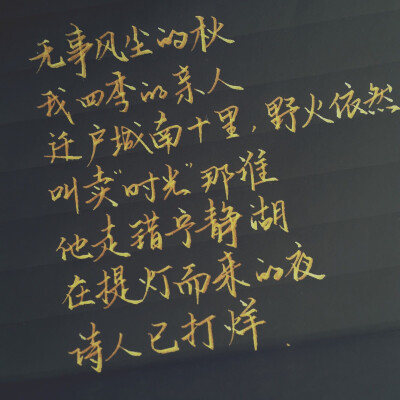 无事风尘的秋
我四季的亲人
迁户城南十里，野火依然
叫卖“时光”那谁
他走错予静湖
在提灯而来的夜
诗人已打烊.